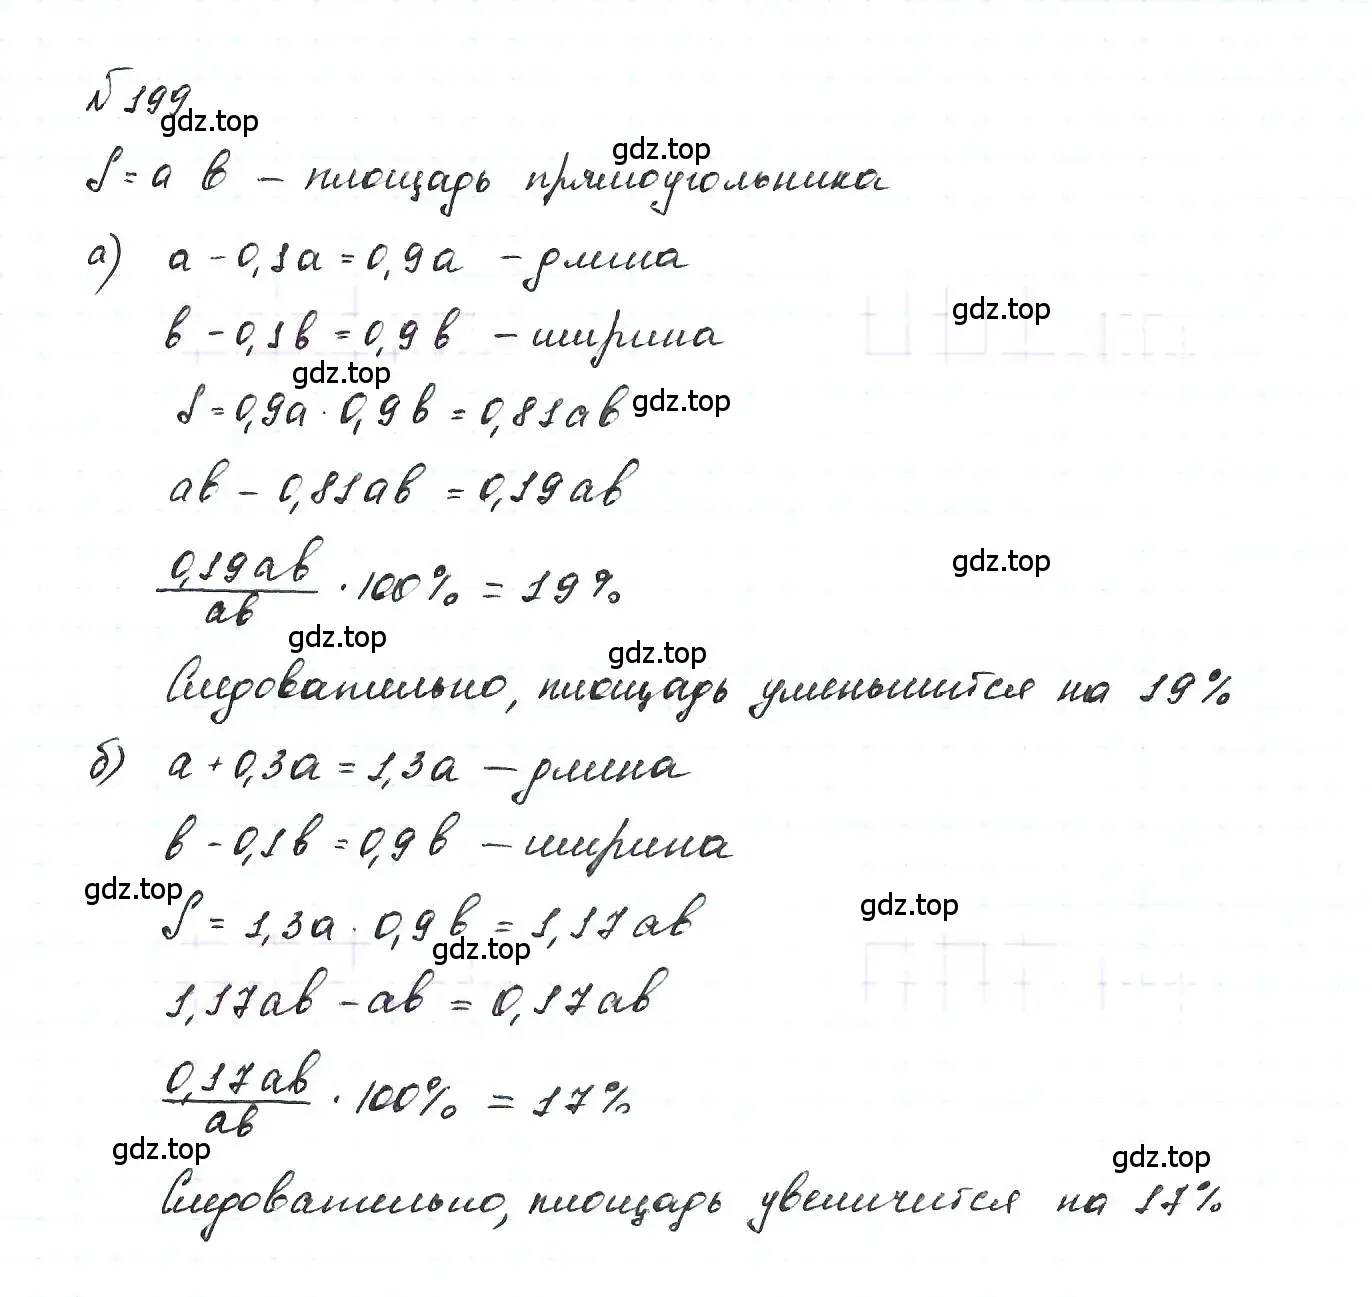 № 199
gdz.top
gdz.top
S = a b – площадь прямоугольника
а) a - 0,1a = 0,9a – длина
gdz.top
b - 0,1b = 0,9b – ширина
gdz.top
gdz.top
S = 0,9a · 0,9b = 0,81ab
ab - 0,81ab = 0,19ab
gdz.top
0,19ab/ab · 100% = 19%
gdz.top
gdz.top
Следовательно, площадь уменьшится на 19%
б) a + 0,3a = 1,3a – длина
b - 0,1b = 0,9b – ширина
gdz.top
gdz.top
S = 1,3a · 0,9b = 1,17ab
gdz.top
1,17ab - ab = 0,17ab
0,17ab/ab · 100% = 17%
gdz.top
gdz.top
Следовательно, площадь увеличится на 17%